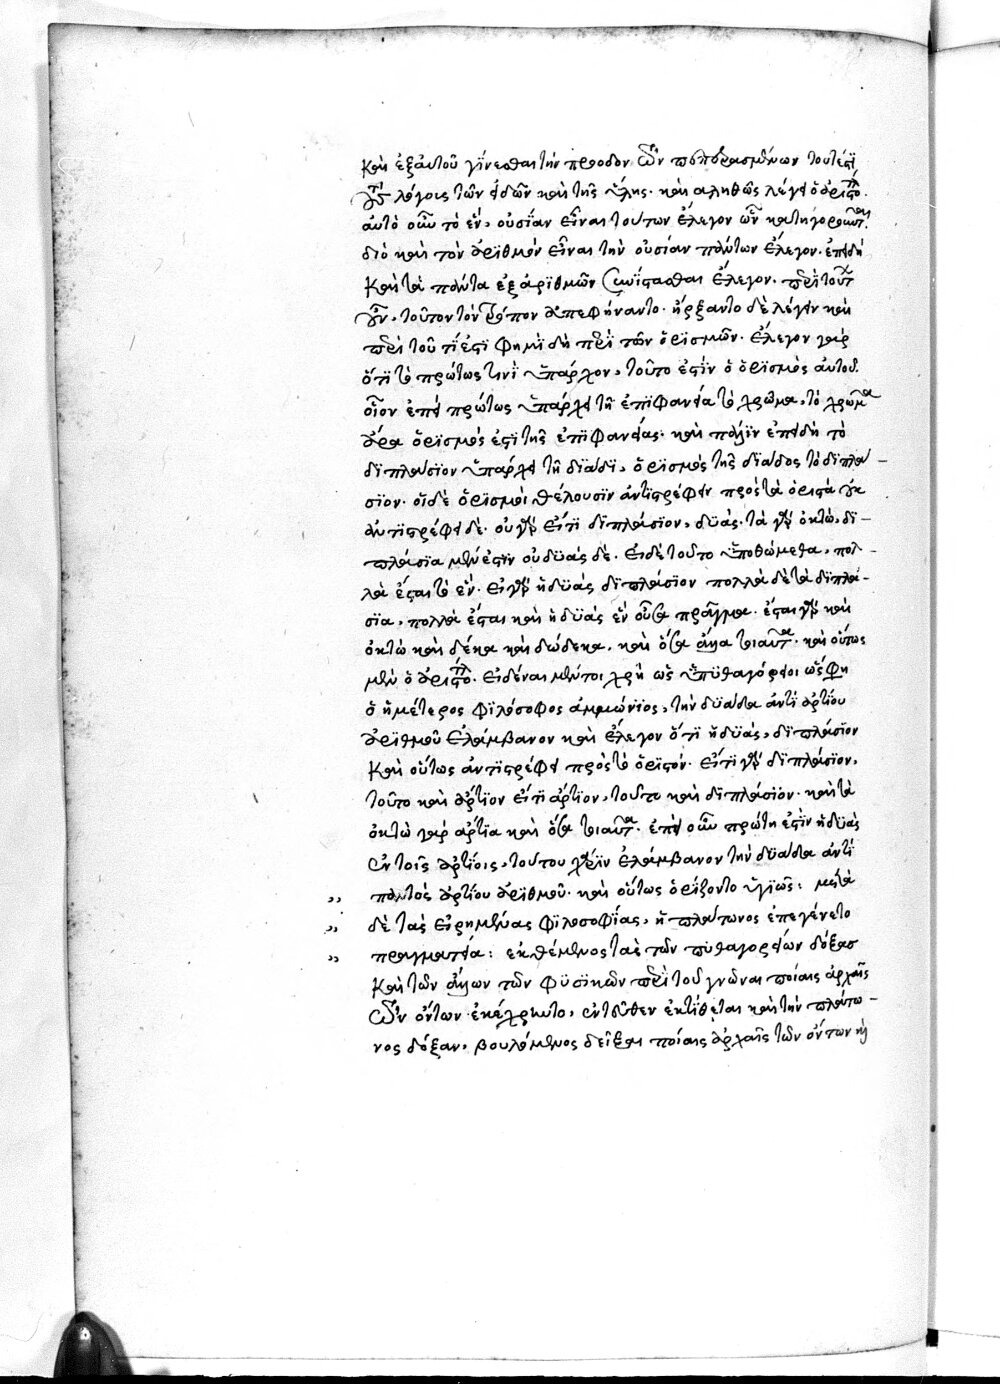 καὶ ἐξ αὐτοῦ γίνεσθαι τὴν πρόοδον τῶν πεπερασμένων τουτέστι
τοῖς λόγοις τῶν εἰδῶν καὶ τῆς ὕλης. καὶ ἀληθῶς λέγει ὁ ἀριστο
αὐτὸ οὖν τὸ ἕν, οὐσίαν εἶναι τούτων ἔλεγον ὧν κατηγορεῖται.
διὸ καὶ τὸν ἀριθμὸν εἶναι τὴν οὐσίαν πάντων ἔλεγον. ἐπειδὴ
καὶ τὰ πάντα ἐξ ἀριθμῶν συνίστασθαι ἔλεγον. περὶ τούτων
οὖν, τοῦτον τὸν τρόπον ἀπεφήναντο. ἤρξαντο δὲ λέγειν καὶ
περὶ τοῦ τί ἐστι φημὶ δὴ περὶ τῶν ὁρισμῶν. ἔλεγον γὰρ
ὅτι τὸ πρώτως τινὶ ὑπάρχον, τοῦτο ἐστὶν ὁ ὁρισμὸς αὐτοῦ.
οἷον ἐπεὶ πρώτως ὑπάρχει τῇ ἐπιφανεία τὸ χρῶμα, τὸ χρῶμα
ἄρα ὁρισμός ἐστι τῆς ἐπιφανείας. καὶ πάλιν ἐπειδὴ τὸ
διπλάσιον ὑπάρχει τῇ δυάδι, ὁρισμὸς τῆς δυάδος τὸ διπλά –
σιον. οἱ δὲ ὁρισμοὶ θέλουσιν ἀντιστρέφειν πρὸς τὰ ὁριστὰ οὐκ
ἀντιστρέφει δέ. οὐ γὰρ εἴ τι διπλάσιον, δυάς. τὰ γὰρ ὀκτώ, δι –
πλάσια μὲν ἐστὶν οὐ δυὰς δέ. εἰ δὲ τοῦτο ὑποθώμεθα, πολ –
λὰ ἔσται τὸ ἕν. εἰ γὰρ ἡ δυὰς διπλάσιον πολλὰ δὲ τὰ διπλά –
σια, πολλὰ ἔσται καὶ ἡ δυὰς ἓν οὖσα πρᾶγμα. ἔσται γὰρ καὶ
ὀκτὼ καὶ δέκα καὶ δώδεκα. καὶ ὅσα ἄλλα τοιαῦτα. καὶ οὕτως
μὲν ὁ ἀριστο. εἰδέναι μέντοι χρὴ ὡς οἱ πυθαγόρειοι ὥς φη
ὁ ἡμέτερος φιλόσοφος ἀμμώνιος, τὴν δυάδα ἀντὶ ἀρτίου
ἀριθμοῦ ἐλάμβανον καὶ ἔλεγον ὅτι ἡ δυάς, διπλάσιον
καὶ οὕτως ἀντιστρέφει πρὸς τὸ ὁριστόν. εἴ τι γὰρ διπλάσιον,
τοῦτο καὶ ἄρτιον εἴ τι ἄρτιον, τοῦτο καὶ διπλάσιον. καὶ τὰ
ὀκτὼ γὰρ ἄρτια καὶ ὅσα τοιαῦτα. ἐπεὶ οὖν πρώτη ἐστὶν ἡ δυὰς
ἐν τοῖς ἀρτίοις, τούτου χάριν ἐλάμβανον τὴν δυάδα ἀντὶ
παντὸς ἀρτίου ἀριθμοῦ. καὶ οὕτως ὁρίζοντο ὑγιῶς: μετὰ
δὲ τὰς εἰρημένας φιλοσοφίας, ἡ πλάτωνος ἐπεγένετο
πραγματεία: ἐκθέμενος τὰς τῶν πυθαγορείων δόξας
καὶ τῶν ἄλλων τῶν φυσικῶν περὶ τοῦ γνῶναι ποίαις ἀρχαῖς
τῶν ὄντων ἐκέχρηντο, ἐντεῦθεν ἐκτίθεται καὶ τὴν πλάτω –
νος δόξαν, βουλόμενος δεῖξαι ποίαις ἀρχαῖς τῶν ὄντων